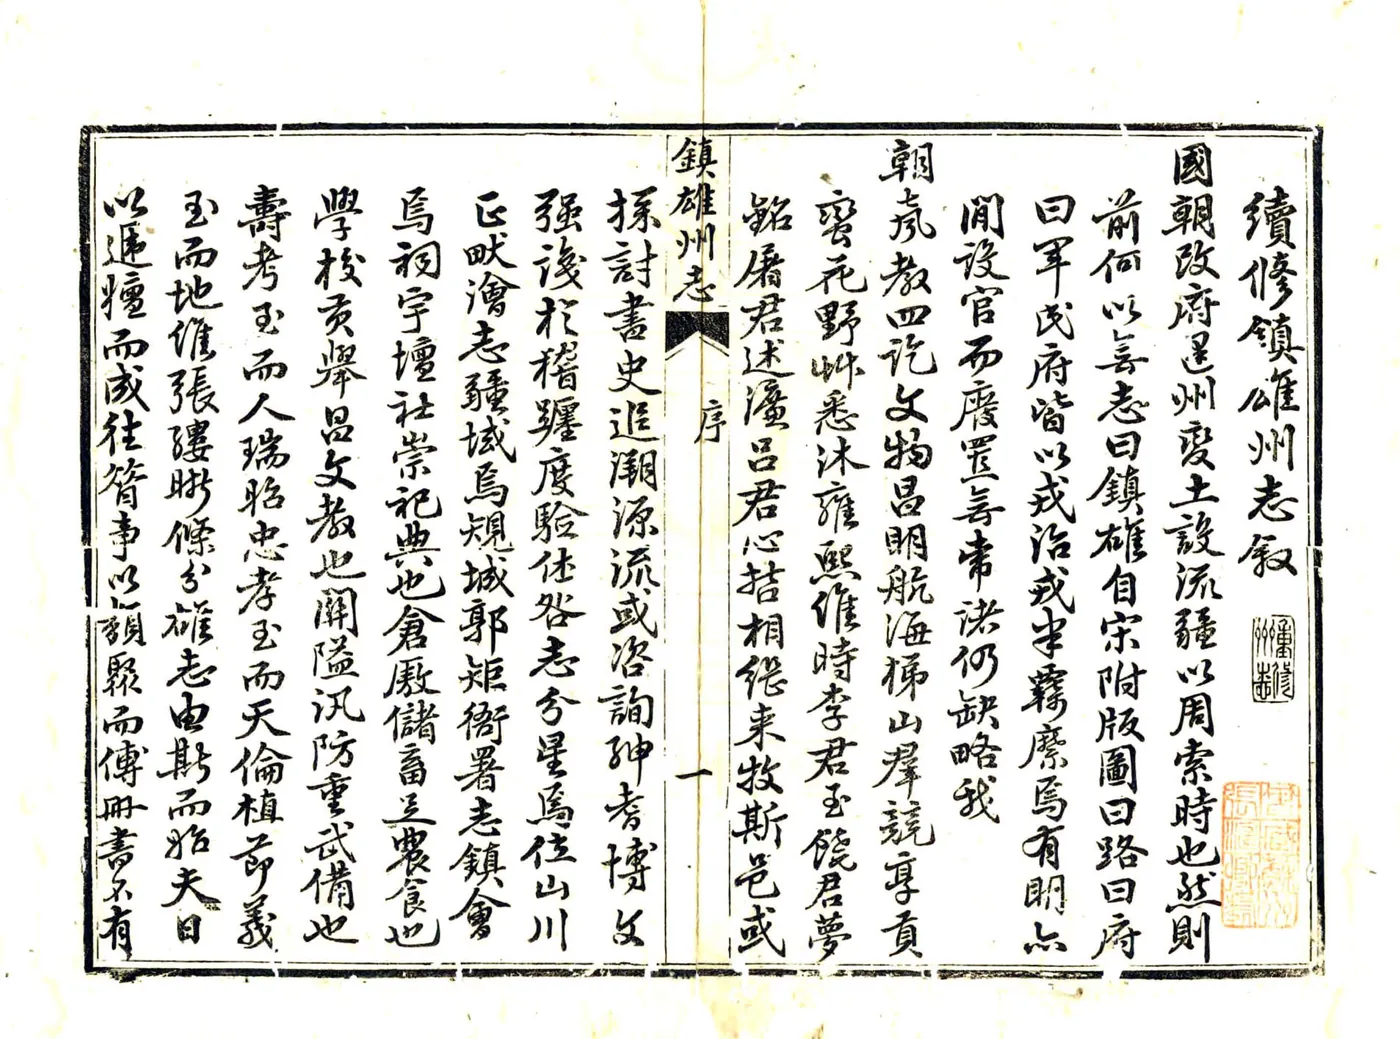 續修鎮雄州志叙
國朝改府還州變土設流疆以周索時也然則
前何以無志曰鎮雄自宋附版圖曰路曰府
曰軍民府皆以戎治戎半羈縻焉有明亦
間設官而廢置無常諸仍缺略我
朝聲教四訖文物昌明航海梯山羣競享貢
蛮花野艸悉沐雍熙維時李君至饒君夢
銘屠君述濂呂君心哲相繼来牧斯邑或
鎮雄州志
序
一
採討書史追溯源流或咨詢紳耆博文
强識於稽躔度驗休咎志分星焉位山川
正畎澮志疆域焉規城郭矩衙署志鎮會
焉祠宇壇社崇祀典也倉廒儲畜足農食也
學校貢舉昌文教也關隘汛防重武備也
壽考至而人瑞貽忠孝至而天倫植節義
至而地維張縷晰條分雄志由斯而始夫日
以遞嬗而成往簪事以類聚而傳冊書不有